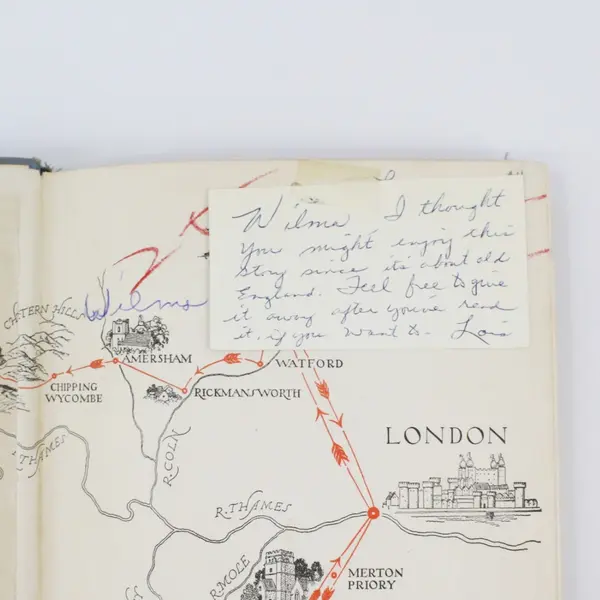 Wilma, I thought
you might enjoy this
story since it's about old
England. Feel free to give
it away after you've read
it, if you want to. Lois
Wilma
CHILTERN HILLS
AMERSHAM
WATFORD
CHIPPING
WYCOMBE
RICKMANSWORTH
LONDON
R. THAMES
R. COLN
R. THAMES
R. MOLE
MERTON
PRIORY